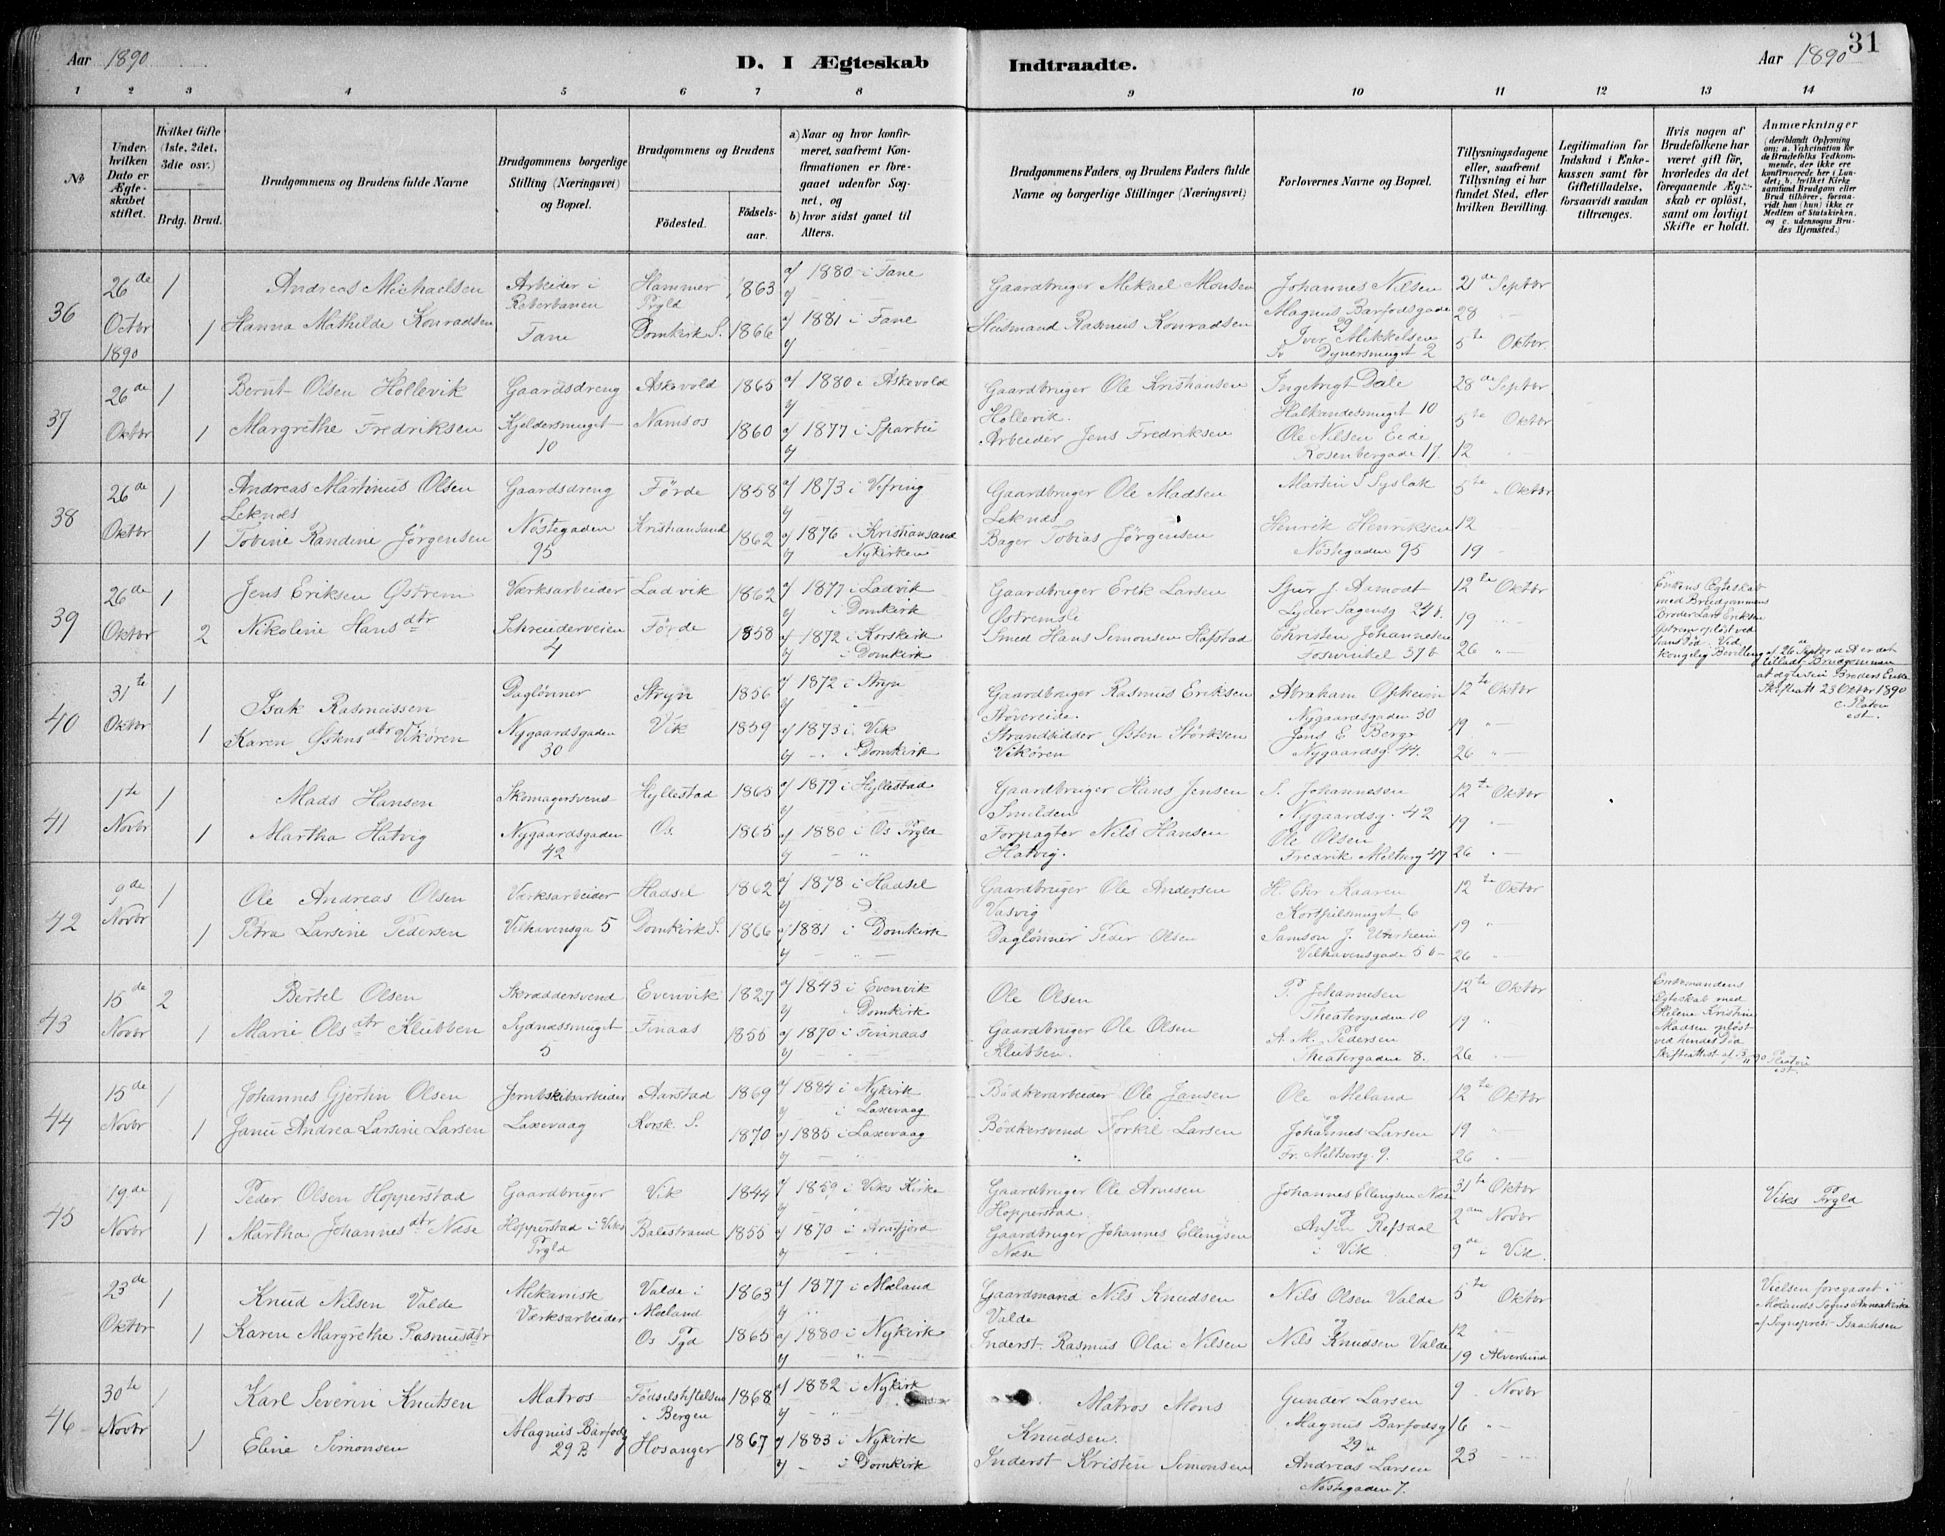 Aar 1890
D. I Ægteskab
Indtraadte.
Aar 1890
31
1 2 3 4 5 6 7 8 9 10 11 12 13 14
№
Under hvilken Dato er Ægteskabet stiftet.
Hvilket Gifte (1ste, 2det, 3die osv.)
Brdg. Brud.
Brudgommens og Brudens fulde Navne
Brudgommens borgerlige Stilling (Næringsvei) og Bopæl.
Brudgommens og Brudens
Födested.
Födselsaar.
a) Naar og hvor konfirmeret, saafremt Konfirmationen er foregaaet udenfor Sognet, og
b) hvor sidst gaaet til Alters.
Brudgommens Faders, og Brudens Faders fulde Navne og borgerlige Stillinger (Næringsvei)
Forlovernes Navne og Bopæl.
Tillysningsdagene eller, saafremt Tillysning ei har fundet Sted, efter hvilken Bevilling.
Legitimation for Indskud i Enkekassen samt for Giftetilladelse, forsaavidt saadan tiltrænges.
Hvis nogen af Brudefolkene har været gift för, hvorledes da det foregaaende Ægteskab er oplöst, samt om lovligt Skifte er holdt.
Anmærkninger
36
26de Octbr 1890
1
Andreas Michaelsen
Arbeider i Reberbanen
Hammer Prgld
1863
a/ 1880 i Fane
Gaardbruger Mikael Monsen
Johannes Nilsen Magnus Barfodsgade 29
21de Septbr
1
Hanna Mathilde Konradsen
Fane
Domkirk S.
1866
a/ 1881 i Fane
Husmand Rasmus Konradsen
Iver Mikkelsen
28
5te Oktbr.
37
26de Oktbr
1
Bernt Olsen Hollevik
Gaardsdreng
Askevold
1865
a/ 1880 i Askevold
Gaardbruger Ole Kristiansen Hollevik.
Ingebrigt Dale
28de Septbr
1
Margrethe Fredriksen
Kjeldersmuget 10
Namsos
1860
a/ 1877 i Sparbu
Arbeider Jens Fredriksen
Ole Nilsen Eide Rosenbergade 17.
5te Oktbr
12
38
26de Oktbr
1
Andreas Martinus Olsen
Gaardsdreng
Førde
1858
a/ 1873 i Vefring
Gaardbruger Ole Madsen
5te Oktbr
1
Tobine Randine Jörgensen
Nöstegaden 95
Kristiansand
1862
a/ 1876 i Kristiansand
Nykirken
Bager Tobias Jörgensen
Henrik Henriksen Nöstegaden 95
12
19
39
26de Oktbr
1
Jens Eriksen Østrem
Værksarbeider
Ladvik
1862
a/ 1877 i Ladvik
i Domkirk
Gaardbruger Erik Larsen
Sjur J. Aamodt
12te Oktbr
2
Nikoline Hansdtr
Schreiderveien 4
Førde
1858
a/ 1872 i Korskirk
i Domkirk
Smed Hans Simonsen Hafstad
Christen Johannesen Fosvinkel 37b
19
26
40
31te Oktbr
1
Isak Rasmussen
Daglönner
Stryn
1856
a/ 1872 i Stryn
Gaardbruger Rasmus Eriksen
Abraham Opheim Nygaardsgaden 30
12te Oktbr
1
Karen Østensdtr Vikören
Nygaardsgaden 30
Vik
1859
a/ 1873 i Vik
i Domkirk
Strandsidder Østen Störksen Vikören
Jens E Berge Nygaardsg. 44.
19
26
41
1te Novbr
1
Mads Hansen
Skomagersvend
Hyllestad
1865
a/ 1879 i Hyllestad
Gaardbruger Hans Jensen
S. Johannesen Nygaardsg. 42
12te Oktbr
1
Martha Hatvig
Nygaardsgaden 42
Os
1865
a/ 1880 i Os Prgld
Forpagter Nils Hansen Hatvig.
Ole Olsen
19
26
42
9de Novbr
1
Ole Andreas Olsen
Værksarbeider
Hadsel
1862
a/ 1878 i Hadsel
Gaardbruger Ole Andersen
12te Oktbr
1
Petra Larsine Pedersen
Velhavensga 5
Domkirk S.
1866
a/ 1881 i Domkirk
Daglönner Peder Olsen
Velhavensgade 5b
19
26
43
15de Novbr
2
Bertel Olsen
Skræddersvend
Evenvik
1827
a/ 1843 i Evenvik
Domkirk
Ole Olsen
P. Johannesen Theatergaden 10
12te Oktbr
Enkemandens Egteskab med Helene Kristine Madsen oplöst ved hendes Död
1
Marie Olsdtr Klubben
Sydnæssmuget 5
Finaas
1855
a/ 1870 i Finnaas
Gaardbruger Ole Olsen Klubben.
A. M. Pedersen Theatergaden 8.
19
26
44
15de Novbr
1
Johannes Gjertin Olsen
Jernskibsarbeider
Aarstad
1869
a/ 1884 i Nykirk
i Laxevaag
Bödkerarbeider Ole Jansen
Ole Meland
12te Oktbr
1
Janu Andrea Larsine Larsen
Laxevaag
Korsk. S.
1870
a/ 1885 i Laxevaag
Bödkersvend Torkil Larsen
og Johannes Larsen Fr. Meltzersg. 9.
19
26
45
19de Novbr
1
Peder Olsen Hopperstad
Gaardbruger
Vik
1844
a/ 1859 i Viks Kirke
Gaardbruger Ole Arnesen Hopperstad.
Johannes Ellingsen Næse
31te Oktbr
Viks Prgld
1
Martha Johannesdtr Næse
Hopperstad i Viks Prgld
Balestrand
1855
a/ 1870 i Arnefjord
Gaardbruger Johannes Ellingsen Næse
og Anfin Refsdal i Vik
2den Novbr
9de i Vik.
23de Oktbr
1
Knud Nilsen Valde
Mekanisk Værksarbeider
Valde i Mæland
1863
a/ 1877 i Mæland
Gaardmand Nils Knudsen Valde
Nils Olsen Valde
5te Oktbr
Vielsen foregaaet i
1
Karen Margrethe Rasmusdtr
Os Pgd
1865
a/ 1880 i Nykirk
Inderst Rasmus Olai Nilsen
og Nils Knudsen Valde
12
19 Alversund
46
30te Novbr
1
Karl Severin Knutsen
Matros
Födselsstiftelsen i Bergen
1868
a/ 1882 i Nykirk
Matros Mons Knudsen.
Gunder Larsen Magnus Barfodsg 29
9 Novbr
1
Eline Simonsen
Magnus Barfodg 29 B
Hosanger
1867
a/ 1883 i Nykirk
i Domkirk
Inderst Kristen Simonsen
Andreas Larsen Nöstegaden 7.
16
23